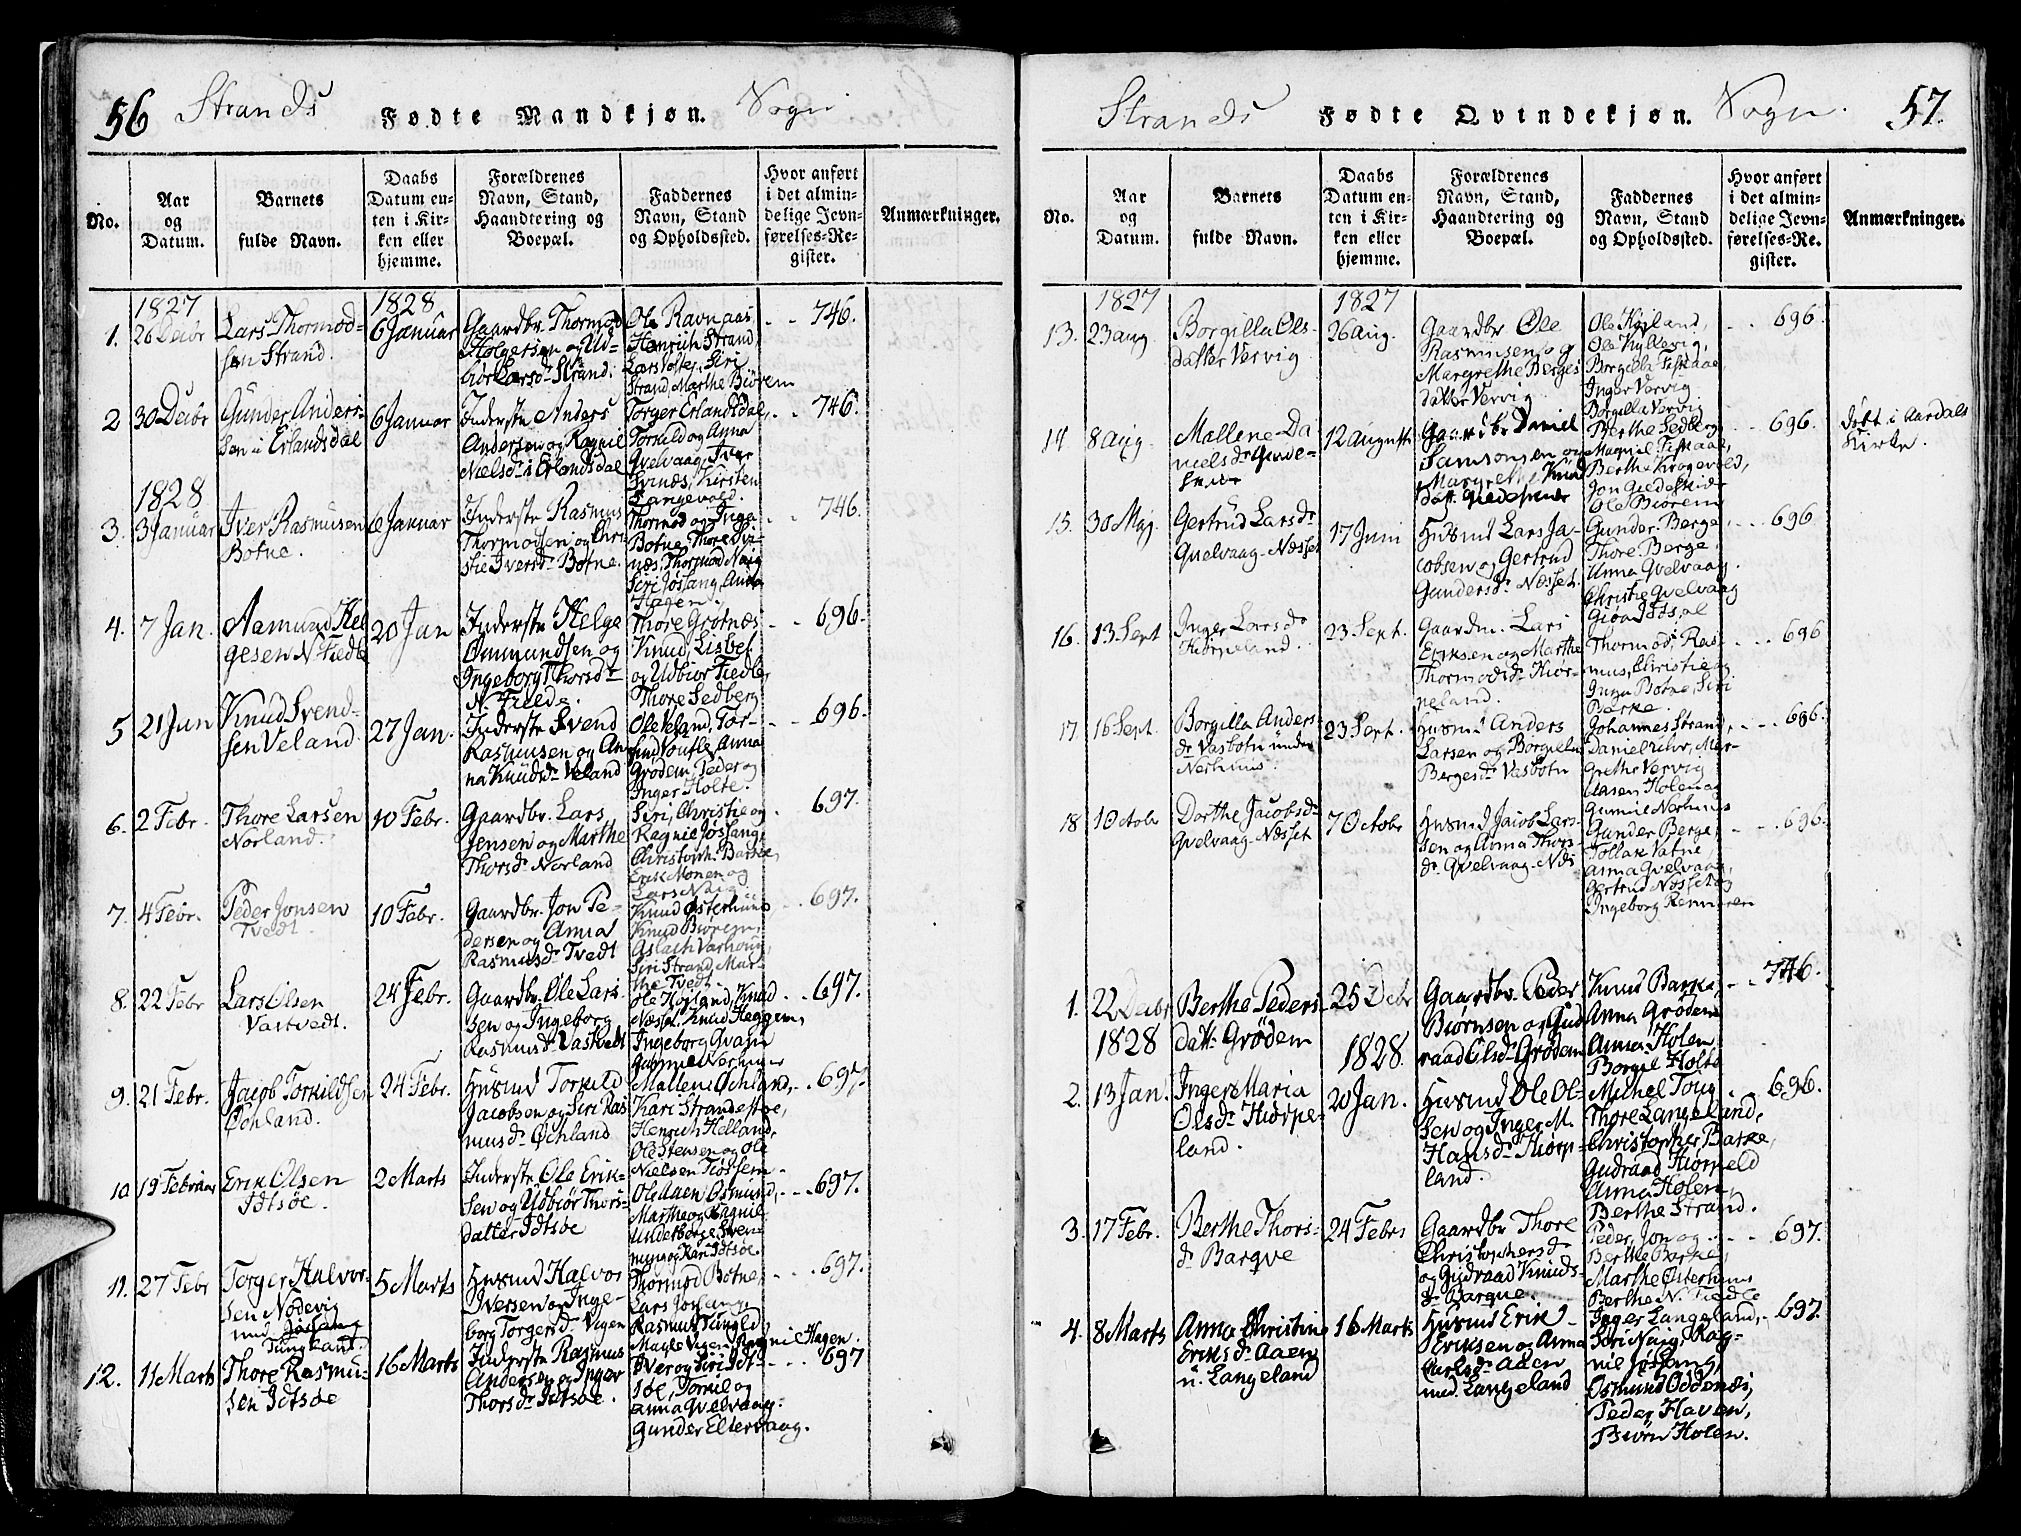 56 Strands Fødte Mandkjøn. Sogn
No.
Aar og Datum.
Barnets fulde Navn.
Daabs Datum enten i Kirken eller hjemme.
Forældrenes Navn, Stand, Haandtering og Boepæl.
Faddernes Navn, Stand og Opholdssted.
Hvor anført i det almindelige Jevnførelses-Register.
Anmærkninger.
1827
1828
1.
26 Decbr
Lars Thormod-
sen Strand.
6 Januar
Gaardbr. Thormod
Holgersen og Ud-
biør Larsdr Strand.
Ole Ravnaas
Henrich Strand,
Lars Voster, Siri
Strand, Marthe Biørem
746.
2
30 Decbr
Gunder Anders-
sen i Erlandsdal
6 Januar
Inderste Anders
Andersen og Ragnil
Nielsdr i Erlandsdal
Torger Erlandsdal,
Torkild og Anna
Qvelvaag, Iver
Svinæs, Kirsten
Langevold.
746.
1828
3.
3 Januar
Iver Rasmusen
Botne.
6 Januar
Inderste Rasmus
Thormodsen og Chri-
stie Iversdr Botne.
Thormod og Inga
Botne, Thore Svi-
næs, Thormod Naig
Siri Jøssang, Anna
Hagen.
746.
4.
7 Jan.
Aamund Hel
gesen N. Fiedle
20 Jan
Inderste Helge
Ommundsen og
Ingeborg Thorsdr
N. Fielde.
Thore Grotnæs
Knud, Lisbet
og Udbiør Fiedle,
Thore Sedberg
696.
5
21 Jan
Knud Svend-
sen Veland.
27 Jan.
Inderste Svend
Rasmusen og An
na Knudsdr Veland
Ole Veland, Tor-
Grødem, Peder og
Inger Holte.
696.
6.
2 Febr.
Thore Larsen
Norland.
10 Febr.
Gaardbr. Lars
Jensen og Marthe
Thorsdr Norland
Siri, Christie og
Ragnie Jøssang,
Christoph. Barke,
Erik Monen og
Lars Naig
697.
7.
4 Febr.
Peder Jonsen
Tvedt.
10 Febr.
Gaardbr. Jon Pe-
dersen og Anna
Rasmusdr Tvedt
Knud Østerhuus,
Knud Biørem,
Aslach Varhoug,
Siri Strand, Mar-
the Tvedt.
697.
8.
22 Febr
Lars Olsen
Vastvedt.
24 Febr.
Gaardbr. Ole Lars-
sen og Ingeborg
Rasmusdr Vastvedt
Ole Høiland, Knud
Næsset, Knud Heggem,
Ingeborg Qvam
Gunnild Nerhuus
697.
9.
21 Febr.
Jacob Torkildsen
Ochland.
24 Febr.
Husmd Torkild
Jacobsen og Siri Ras
musdr Ochland
Mallene Ochland,
Kari Strandestøe,
Henrich Helland,
Ole Stensen og Ole
Nielsen Fiøssem
697.
10
19 Februar
Erik Olsen
Idtsøe.
2 Marts
Inderste Ole Erik-
sen og Udbiør Thors-
datter Idtsøe
Ole Aaen Osmund,
Marthe og Ragnil
Underberge, Sven-
nung og Kari Idtsøe.
697.
11.
27 Febr
Torger Halvor-
sen Nødevig
und. Jøssang
Tungland.
5 Marts
Husmd Halvor
Iversen og Inge-
borg Torgersdr Vigen
Thormod Botne,
Lars Jøssang
Rasmus Tungld
Magle Vigen Ragnie Hagen.
697.
12.
11 Marts
Thore Rasmu-
sen Idtsøe
16 Marts
Inderste Rasmus
Andersen og Inger
Thorsdr Idtsøe.
Iver og Siri Idt-
søe, Torkil og
Anna Qvelvaag.
Gunder Eltervaag.
697
Strands Fødte Qvindekjøn. Sogn. 57.
No.
Aar og Datum.
Barnets fulde Navn.
Daabs Datum enten i Kirken eller hjemme.
Forældrenes Navn, Stand, Haandtering og Boepæl.
Faddernes Navn, Stand og Opholdssted.
Hvor anført i det almindelige Jevnførelses-Register.
Anmærkninger.
1827
1827
13.
23 aug
Borgilla Ols-
datter Vervig
26 aug.
Gaardbr Ole
Rasmusen og
Margrethe Berges
datter Vervig
Ole Kyllevig,
Borgilla Fiskaae,
Inger Vervig
Borgilla Vervig
696.
14
8 aug.
Mallene Da
nielsdr Giede-
skier
12 Augusti
Gaardbr Daniel
Samsonsen og
Margrethe Knud
datt. Giedeskier
Berthe Sedberg
Magniel Fiskaae,
Berthe Krogevold,
Jon Giedeskier
Ole Biørem
696.
Døbt i Aardals
Kirke.
15.
30 Maj
Gertrud Larsdr
Qvelvaag-Næsset
17 Juni
Husmd Lars Ja-
cobsen og Gertrud
Gundersdr Næsset.
Gunder Berge,
Thore Berge
Anna Qvelvaag.
Christie Qvelvaag
696
16.
13 Sept
Inger Larsdr
Kiørpeland.
23 Sept.
Gaardm. Lars
Eriksen og Marthe
Thormodsdr Kiør-
peland.
Thormod, Ras-
mus, Christie og
Inga Botne, Siri
Barke.
696
17
16 Sept.
Borgilla Anders-
dr Vasbotn under
Nerhuus.
23 Sept.
Husmd Anders
Larsen og Borgilla
Bergesdr Vasbotn
Johannes Strand,
Grethe Vervig
Aasen Holen og
Gunnil Nerhuus
696.
18
1 Octobr
Dorthe Jacobsdr
Qvelvaag-Næsset
7 Octobr
Husmd Jacob Lars-
sen og Anna Thors-
dr Qvelvaag-Næs
Gunder Berge,
Tollak Vatne,
Anna Qvelvaag,
Gertrud Næsset og
Ingeborg Renmoren
696.
1.
22 Decbr
Berthe Peders-
datt: Grødem
25 Decbr
Gaardbr. Peder
Biørnsen og Gud
raad Olsdr Grødem
Knud Barka,
Anna Grødem
Anna Holen
Borgil Holte
746.
1828
1828.
2.
13 Jan.
Inger Maria
Olsdr Kiørpe-
land.
20 Jan.
Husmd Ole Ol-
sen og Inger M.
Hansdr Kiørp-
land.
Michel Toug
Thore Langeland,
Christopher Barke,
Gudraad Fiørmeld
Anna Holen,
Berthe Strand.
696.
3.
17 Febr.
Berthe Thors-
dr Barqve
24 Febr
Gaardbr Thore
Christophersdr
og Gudraad Knuds-
dr Barqve.
Peder, Jon og
Berthe Barke,
Marthe Østerhuus
Berthe N. Fiedle
697.
4.
8 Marts
Anna Christine
Eriksdr Aaen
u. Langeland
16 Marts
Husmd Erik
Eriksen og Anna
Carlsdr Aaen
und. Langeland
Inger Langeland,
Siri Naig, Rag-
nie Jøssang,
Osmund Oddenæs,
Peder Haven,
Biørn Holen.
697.